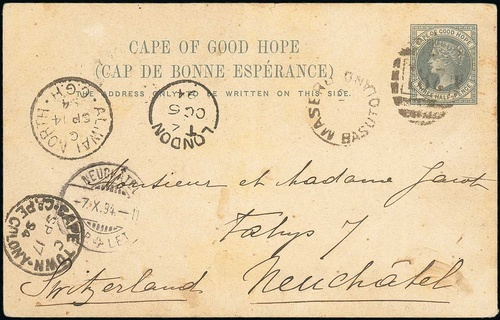 CAPE OF GOOD HOPE
(CAP DE BONNE ESPÉRANCE)
THE ADDRESS ONLY TO BE WRITTEN ON THIS SIDE.
CAPE OF GOOD HOPE
PENCE
MASERU
BASUTOLAND
LONDON
T
7
OC 5
94
ALIWAL NORTH
C
SP 14
94
C.G.H.
NEUCHÂTEL
-7.X.94-11
LET
CAPE TOWN
C
SP 17
94
CAPE COLONY
Monsieur et Madame Jacot
Fahys 7
Neuchâtel
Switzerland